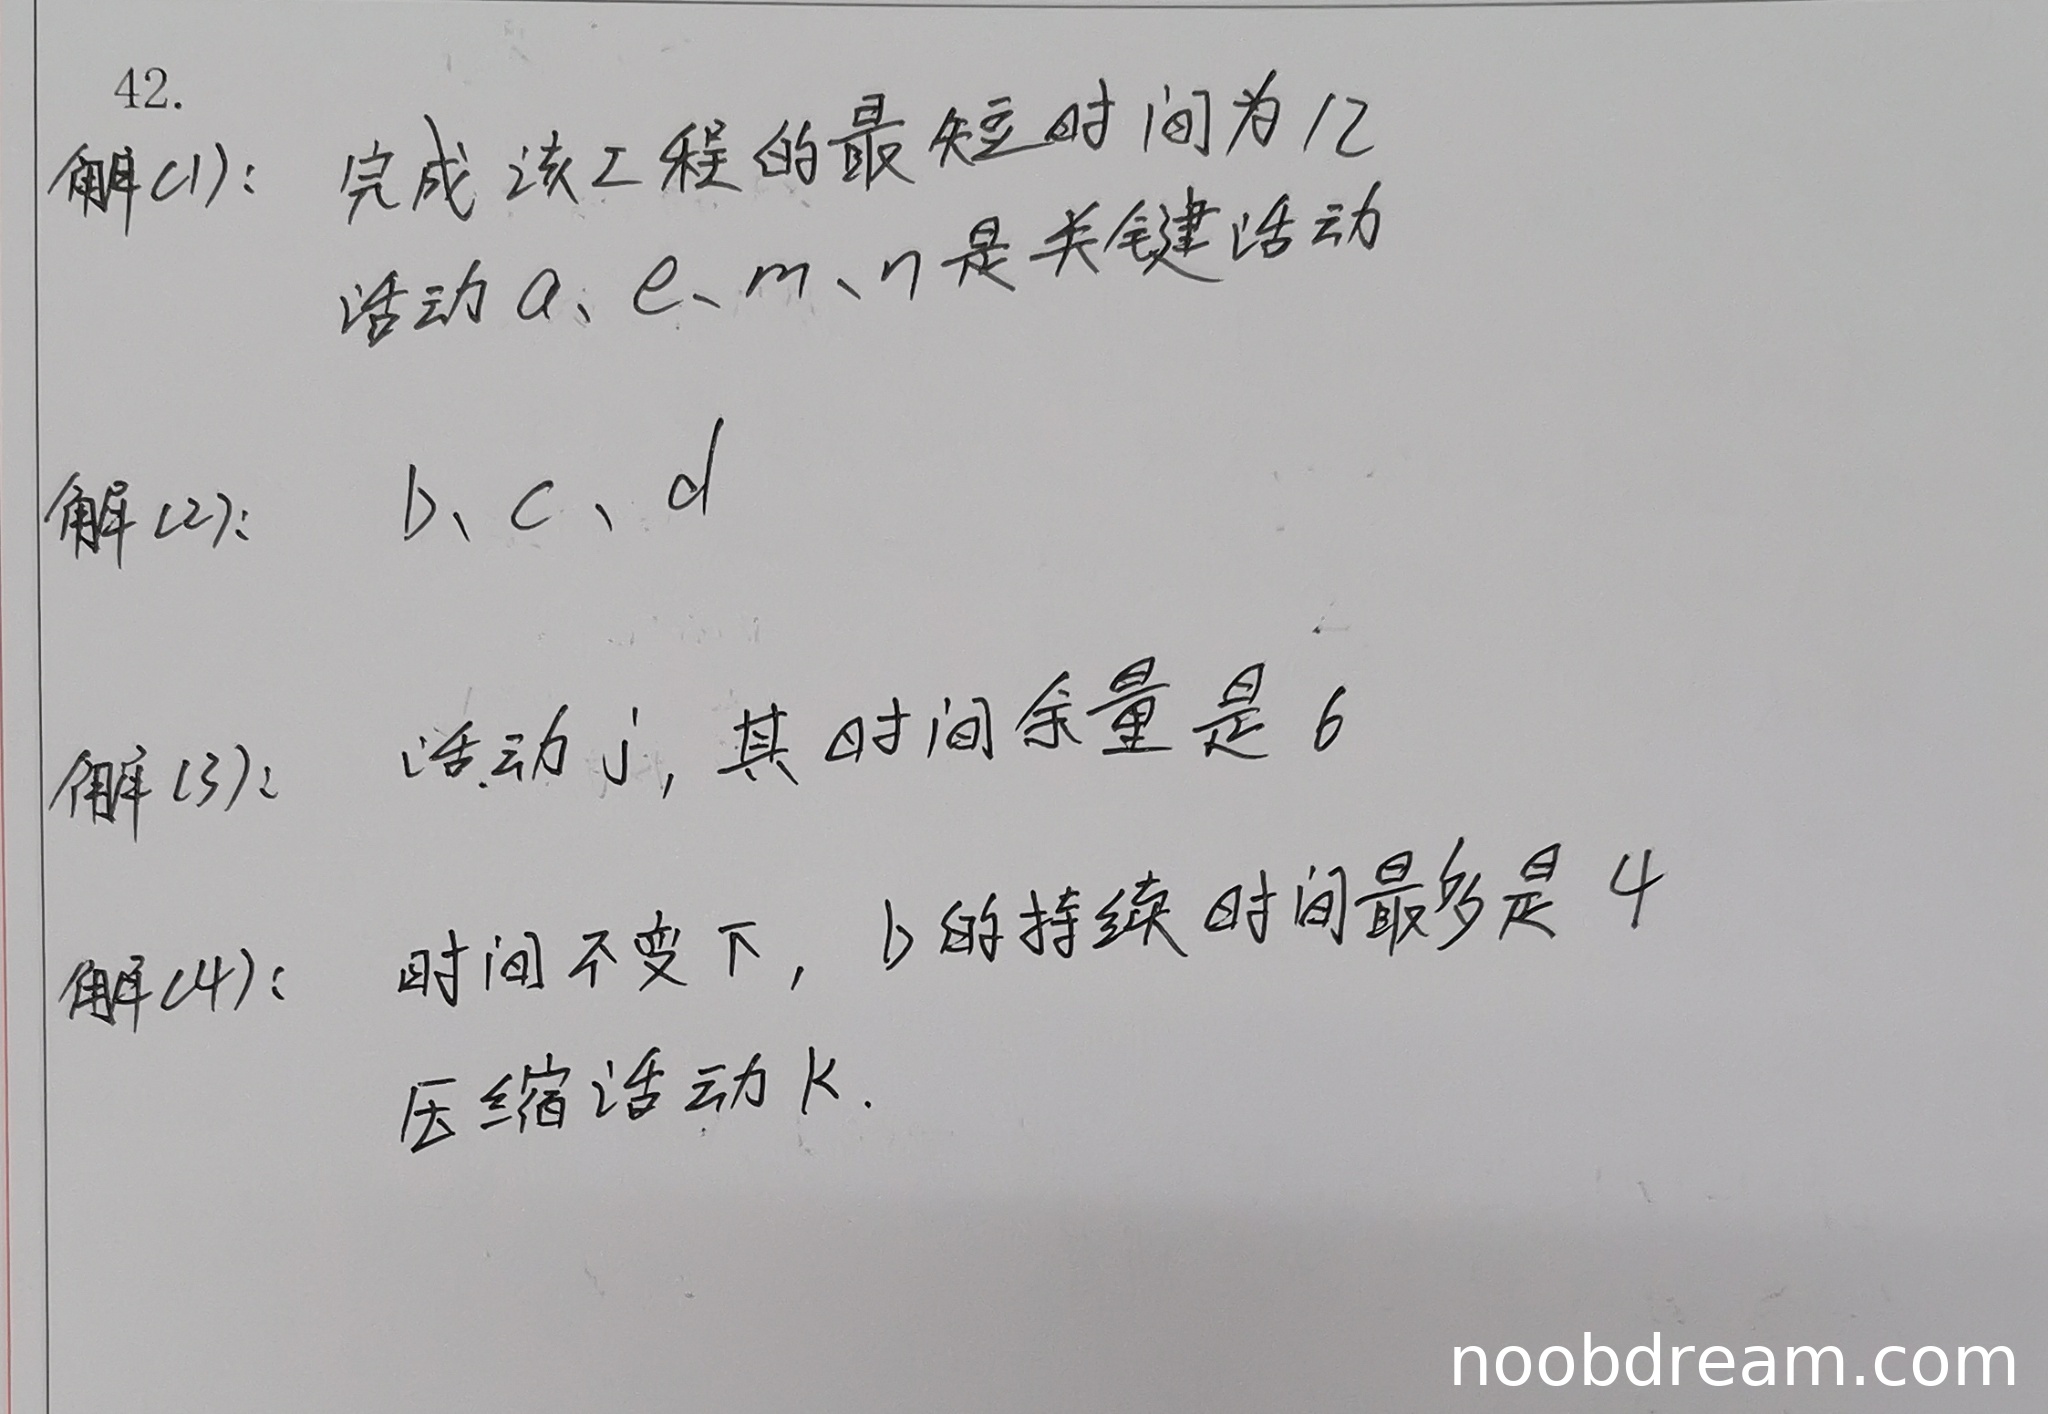 42.
解(1): 完成该工程的最短时间为12
活动a、e、m、n是关键活动
解(2): b、c、d
解(3): 活动j,其时间余量是6
解(4): 时间不变下,b的持续时间最多是4
压缩活动k.
noobdream.com